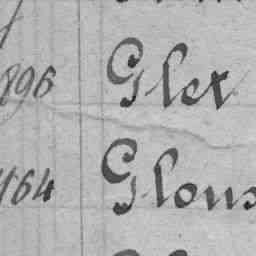 896 Glex
164 Glous